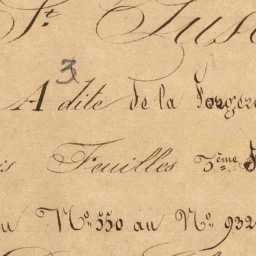 St. Jus
3
A dite de la Forgere
is Feuilles 3ème
du No. 550 au No. 932